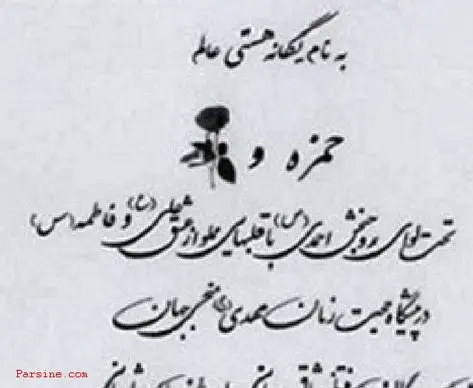 به نام یگانه هستی عالم
حمزه و
تحت لوای روحبخش احمدی (ص) با قلبهای مملو از عشق علی (ع) و فاطمه (س)
در پیشگاه حجت زمان مهدی منجی جهان
Parsine.com